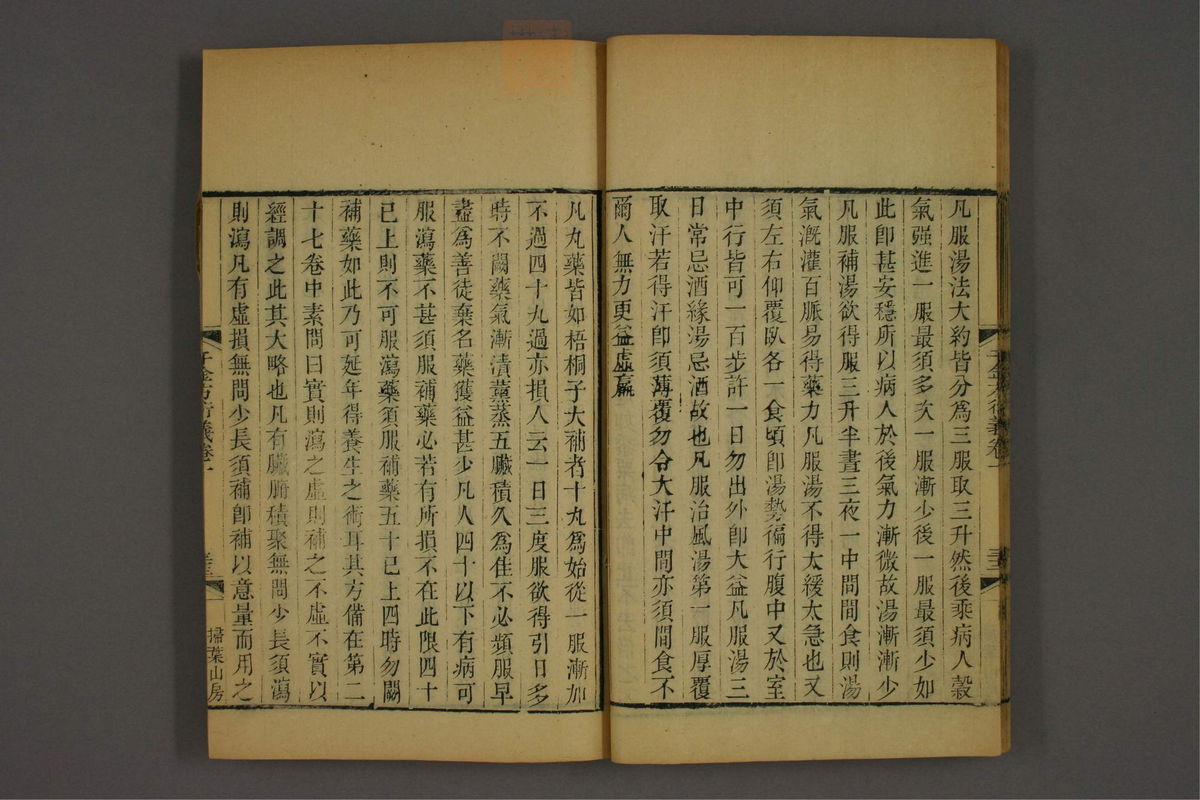 凡服湯法大約皆分為三服取三升然後乘病人穀
氣强進一服最須多次一服漸少後一服最須少如
此卽甚安穩所以病人於後氣力漸微故湯漸漸少
凡服補湯欲得服三升半晝三夜一中間間食則湯
氣溉灌百脈易得藥力凡服湯不得太緩太急也又
須左右仰覆臥各一食頃卽湯勢徧行腹中又於室
中行皆可一百步許一日勿出外卽大益凡服湯三
日常忌酒緣湯忌酒故也凡服治風湯第一服厚覆
取汗若得汗卽須薄覆勿令大汗中間亦須間食不
爾人無力更益虛羸
凡丸藥皆如梧桐子大補者十丸為始從一服漸加
不過四十丸過亦損人云一日三度服欲得引日多
時不闕藥氣漸漬薰蒸五臟積久為佳不必頻服早
盡為善徒棄名藥獲益甚少凡人四十以下有病可
服瀉藥不甚須服補藥必若有所損不在此限四十
已上則不可服瀉藥須服補藥五十已上四時勿闕
補藥如此乃可延年得養生之術耳其方備在第二
十七卷中素問曰實則瀉之虛則補之不虛不實以
經調之此其大略也凡有臟腑積聚無問少長須瀉
則瀉凡有虛損無問少長須補卽補以意量而用之
千金方衍義卷一
掃葉山房